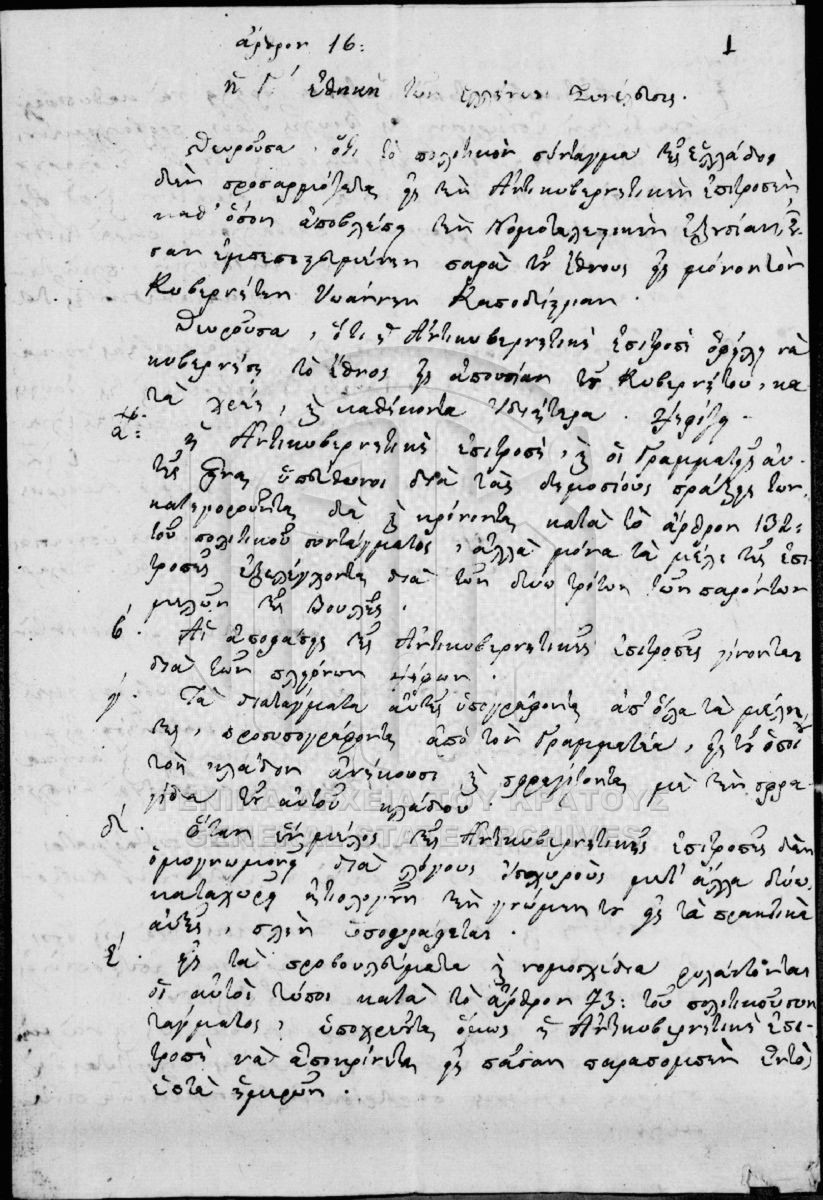 ἄρθρον 16:
1
ἡ Γ΄ ἐθνικὴ τῶν ἑλλήνων Συνέλευσις.
Θεωροῦσα, ὅτι τὸ πολιτικὸν σύνταγμα τῆς ἑλλάδος
δὲν προσαρμόζεται εἰς τὴν Ἀντικυβερνητικὴν ἐπιτροπὴν
καθ' ὅσον ἀποβλέπει τὴν Νομοτελεστικὴν ἐξουσίαν,
σαν ἐμπεπιστευμένην παρὰ τοῦ ἔθνους εἰς μόνον τὸν
Κυβερνήτην Ἰωάννην Καποδίστριαν.
Θεωροῦσα, ὅτι ἡ Ἀντικυβερνητικὴ ἐπιτροπὴ ὀφείλει νὰ
κυβερνήσῃ τὸ ἔθνος εἰς ἀπουσίαν τοῦ Κυβερνήτου, κα-
τὰ χρέη, καὶ καθήκοντα ἰδιαίτερα. Ψηφίζει.
α΄: ἡ Ἀντικυβερνητικὴ ἐπιτροπὴ, καὶ οἱ Γραμματεῖς αὐ-
τῆς εἶναι ὑπεύθυνοι διὰ τὰς δημοσίους πράξεις των,
κατηγοροῦνται δὲ καὶ κρίνονται κατὰ τὸ ἄρθρον 132:
τοῦ πολιτικοῦ συντάγματος, ἀλλὰ μόνα τὰ μέλη τῆς ἐπι-
τροπῆς ἐξελέγχονται διὰ τῶν δύω τρίτων τῶν παρόντων
μελῶν τῆς Βουλῆς.
β΄. Αἱ ἀποφάσεις τῆς Ἀντικυβερνητικῆς ἐπιτροπῆς γίνονται
διὰ τῶν πλειόνων ψήφων.
γ΄. Τὰ διατάγματα αὐτῆς ὑπογράφονται ἀπ' ὅλα τὰ μέλη
της, προσυπογράφονται ἀπὸ τὸν Γραμματέα, εἰς τοῦ ὁποίου
τὸν κλάδον ἀνήκουσι καὶ σφραγίζονται μὲ τὴν σφρα-
γίδα τοῦ αὐτοῦ κλάδου.
ΓΕΝΙΚΑ ΑΡΧΕΙΑ ΤΟΥ ΚΡΑΤΟΥΣ
GENERAL STATE ARCHIVES
δ΄. ὅταν ἓν μέλος τῆς Ἀντικυβερνητικῆς ἐπιτροπῆς δὲν
ὁμογνωμονῇ διὰ λόγους ἰσχυροὺς μετ' ἄλλα δύω,
καταχωρεῖ ᾐτιολογημένην τὴν γνώμην του εἰς τὰ πρακτικὰ
αὐτῆς, πλὴν ὑπογράφεται.
ε΄. εἰς τὰ προβουλεύματα καὶ νομοσχέδια φυλάττονται
οἱ αὐτοὶ τύποι κατὰ τὸ ἄρθρον 73: τοῦ πολιτικοῦ συν
τάγματος, ὑποχρεοῦται ὅμως ἡ Ἀντικυβερνητικὴ ἐπι-
τροπὴ νὰ ἀποκρίνεται εἰς πᾶσαν παραπομπὴν ἐντὸς
ἑπτὰ ἡμερῶν.